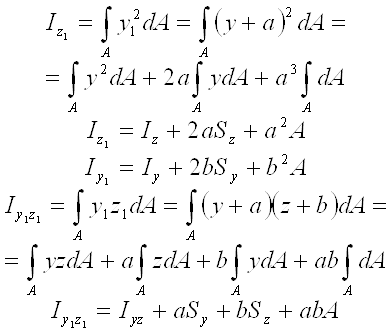 I_{z_1} = ∫_A y_1^2 dA = ∫_A (y + a)^2 dA =
= ∫_A y^2 dA + 2a ∫_A ydA + a^3 ∫_A dA
I_{z_1} = I_z + 2aS_z + a^2 A
I_{y_1} = I_y + 2bS_y + b^2 A
I_{y_1 z_1} = ∫_A y_1 z_1 dA = ∫_A (y + a)(z + b)dA =
= ∫_A yzdA + a ∫_A zdA + b ∫_A ydA + ab ∫_A dA
I_{y_1 z_1} = I_{yz} + aS_y + bS_z + abA